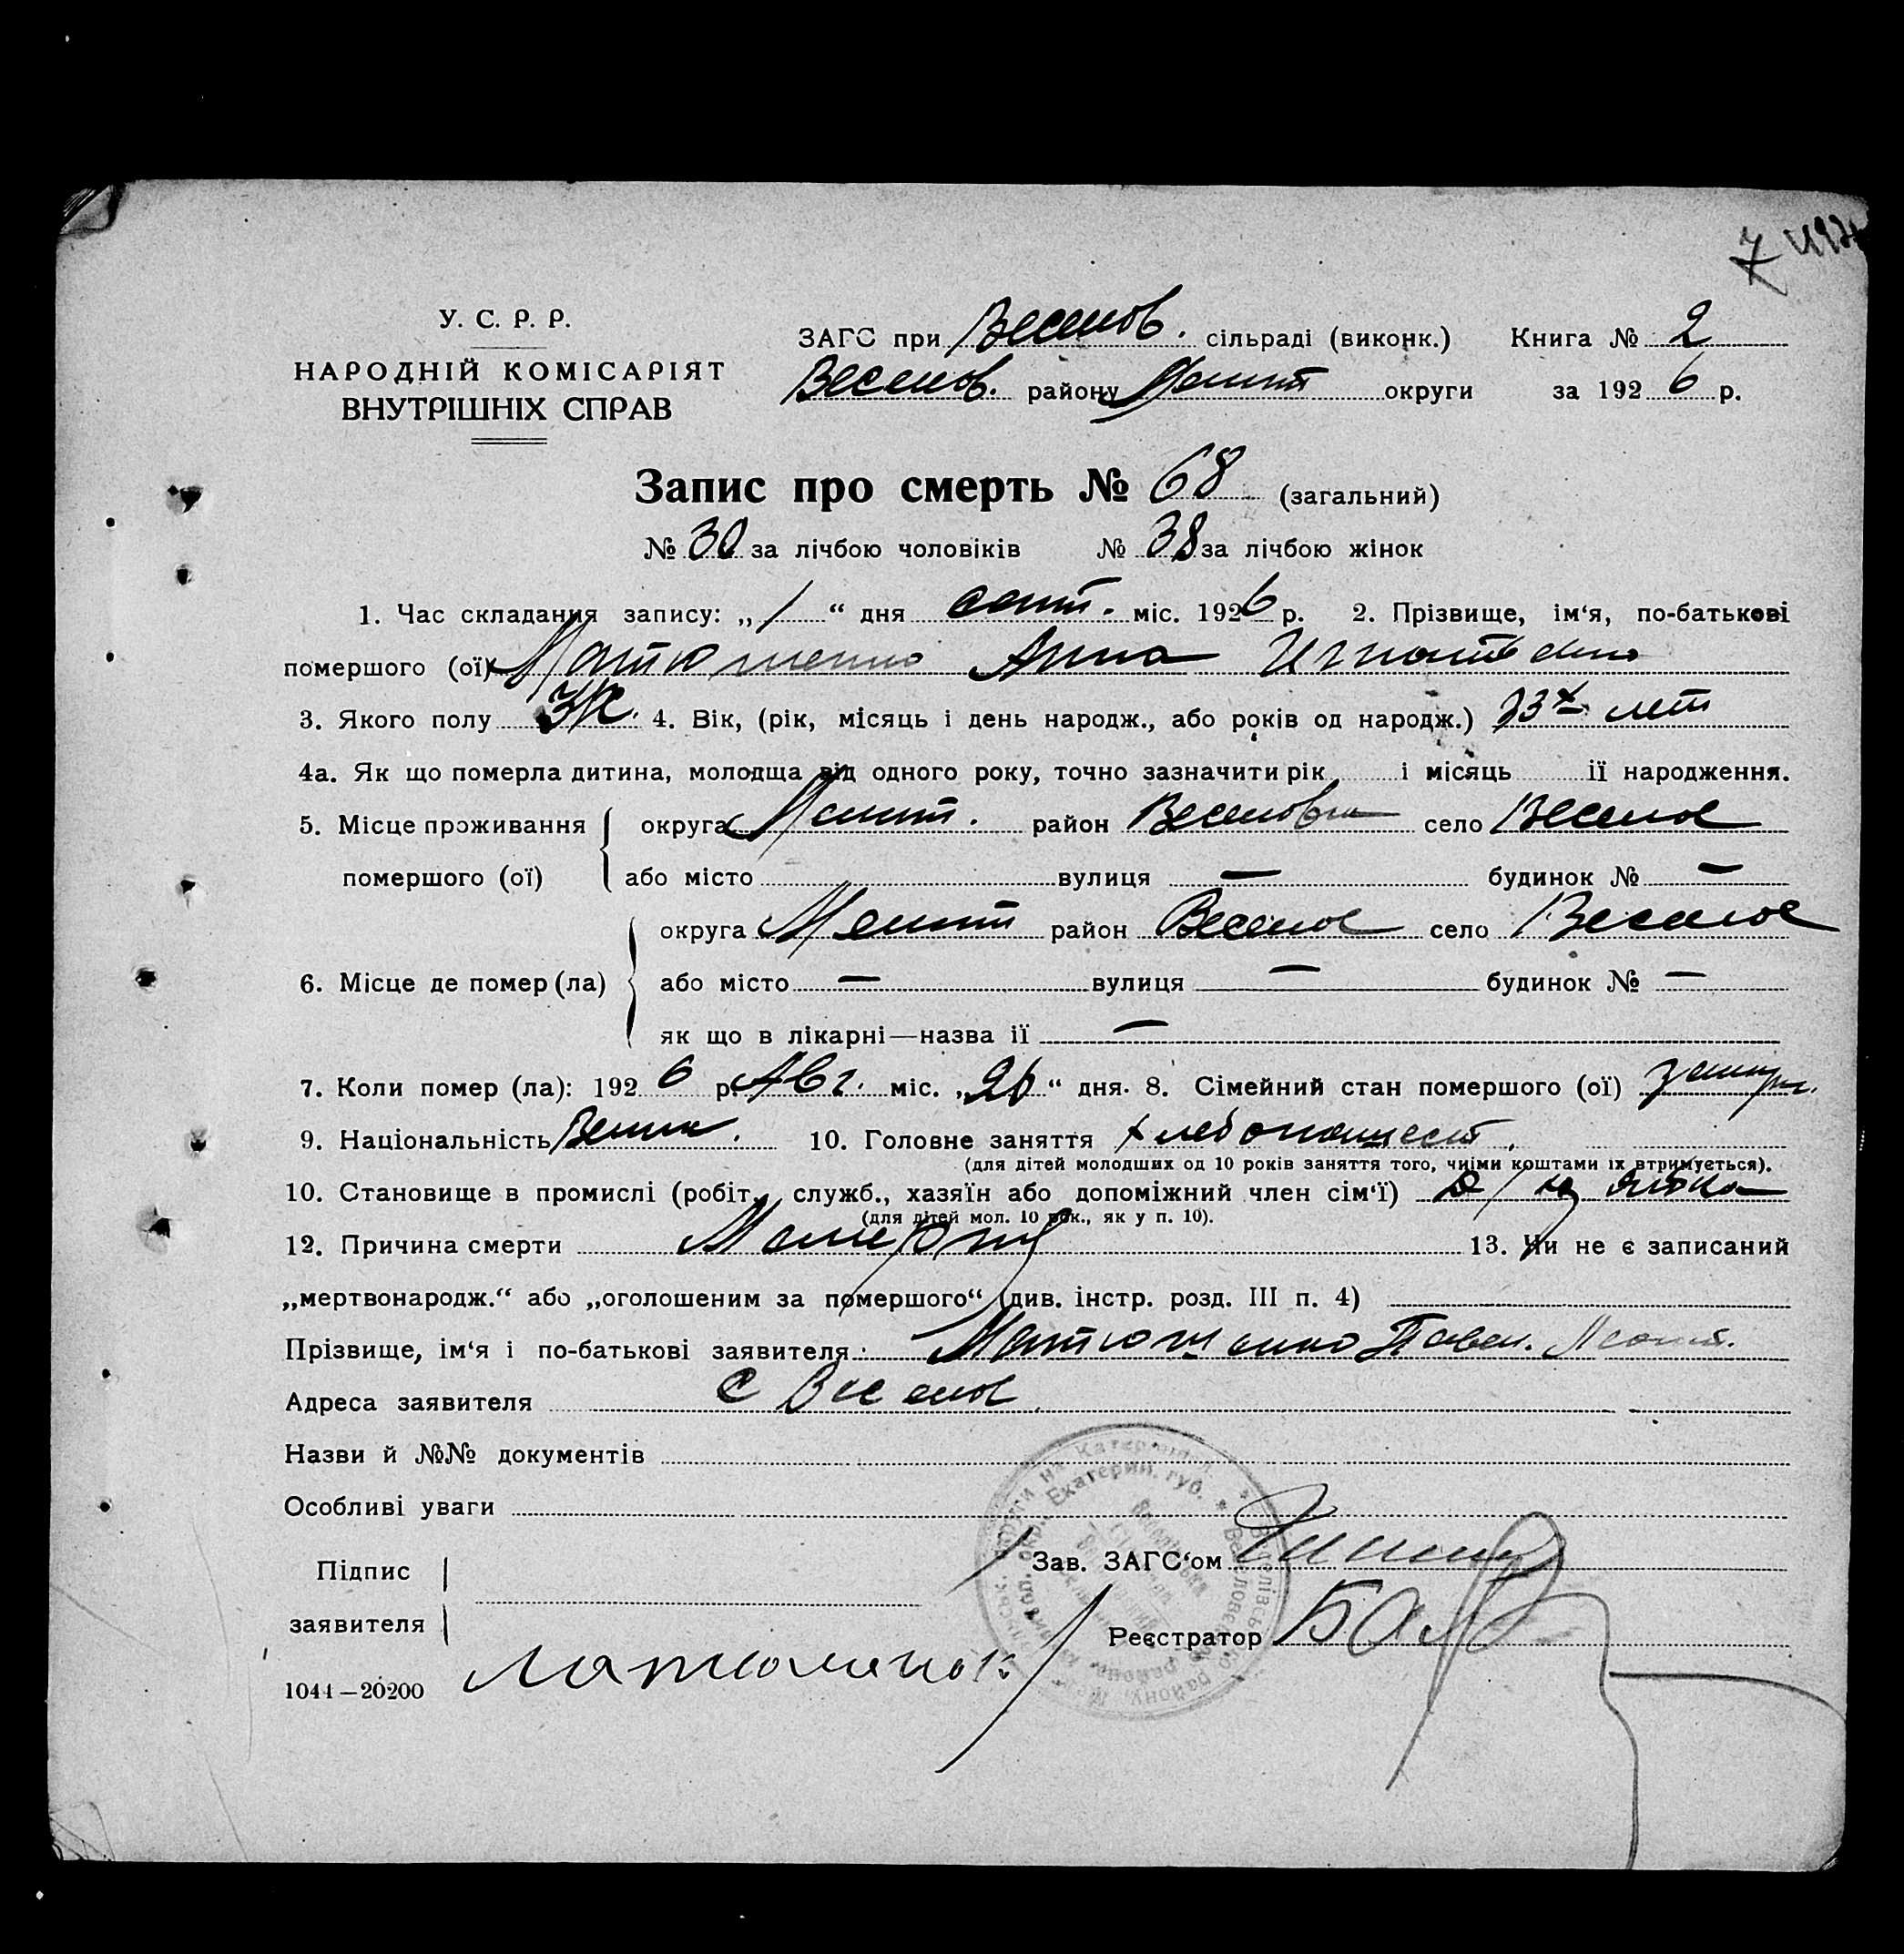 У. С. Р. Р.
НАРОДНІЙ КОМІСАРІЯТ
ВНУТРІШНІХ СПРАВ
ЗАГС при Веселов. сільраді (виконк.) Книга № 2
Веселов. району Мелит округи за 1926 р.
Запис про смерть № 68 (загальний)
№ 30 за лічбою чоловіків № 38 за лічбою жінок
1. Час складання запису: „ 1 “ дня сент. міс. 1926 р. 2. Прізвище, ім‘я, по-батькові
помершого (ої) Матюшенко Анна Игнатьевна
3. Якого полу Ж. 4. Вік, (рік, місяць і день народж., або років од народж.) лет
4а. Як що померла дитина, молодща від одного року, точно зазначити рік і місяць ії народження.
5. Місце проживання округа Мелит. район село Веселое
помершого (ої) або місто вулиця — будинок № —
округа Мелит район Веселое село Веселое
6. Місце де помер (ла) або місто — вулиця — будинок № —
як що в лікарні—назва ії —
7. Коли помер (ла): 1926 р. Авг. міс. „26“ дня. 8. Сімейний стан помершого (ої)
9. Національність 10. Головне заняття хлебопашест.
(для дітей молодших од 10 років заняття того, чиїми коштами їх втримується).
10. Становище в промислі (робіт., служб., хазяїн або допоміжний член сім‘ї)
(для дітей мол. 10 рок., як у п. 10).
12. Причина смерти 13. Чи не є записаний
„мертвонародж.“ або „оголошеним за помершого“ (див. інстр. розд. III п. 4)
Прізвище, ім‘я і по-батькові заявителя: Матюшенко Павел.
Адреса заявителя с Веселое
Назви й №№ документів
Особливі уваги
Підпис
заявителя
Зав. ЗАГС‘ом
Реєстратор
1044—20200